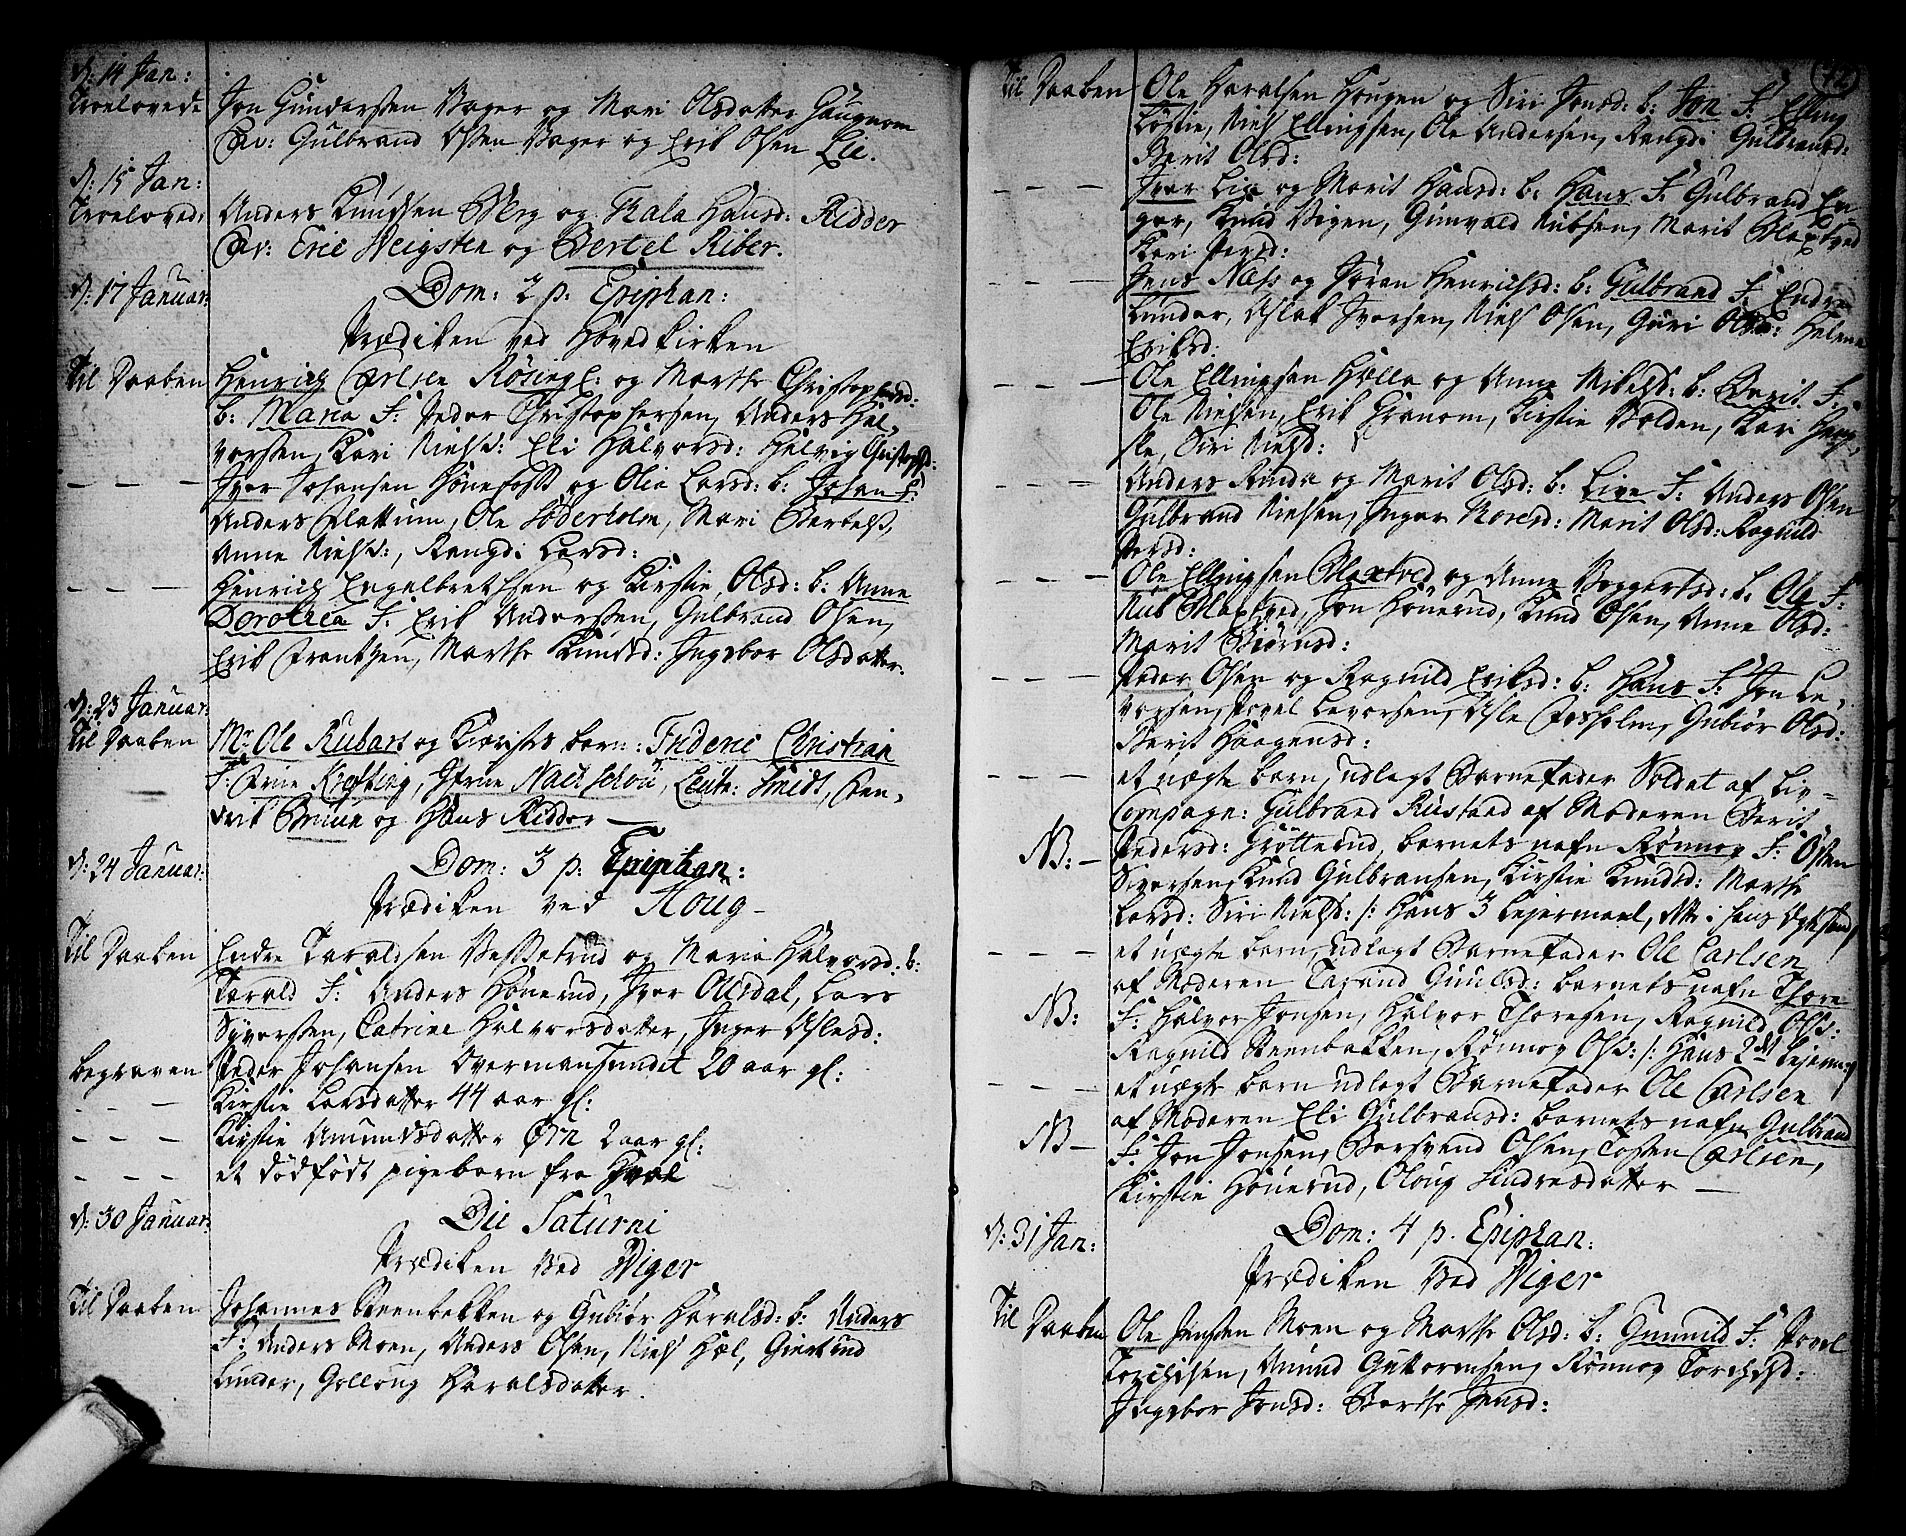 d: 14 Jan:
Troelovede Jon Gundersen Vager og Mari Olsdatter Haugnom
Cav: Gulbrand Ossen Vager og Erik Olsen Lie.
d: 15 Jan:
Troeloved: Anders Knudsen Berg og Kala Hansd: Ridder
Cav: Eric Weigsten og Bertel Riber.
d: 17 Januar: Dom: 2 p. Epiphan:
Prædiken ved Hovedkirken
Til Daaben Henrich Carlsen Røsingl: og Marthe Christophersd:
b: Maria F: Peder Christophersen, Anders Hal,
vorssen, Kari Nielsd: Eli Halvorsd: Helvig Christophd:
- - - Iver Johansen Hönefoss og Olia Larsd: b: Johan F:
Anders Flattum, Ole Söderholm, Mari Bertelsd,
Anne Nielsd:, Rangdi Larsd:
- - - Henrich Engelbrethsen og Kirstie Olsd: b: Anne
Dorothea F: Erik Anderssen, Gulbrand Olsen,
Erik Frantzen, Marthe Knudsd: Ingebor Olsdatter.
d: 23 Januar:
Til Daaben Mr Ole Rubars og Kierstes barn: Frideric Christian
F: Frue Krefting, Jfrue Nachschou, Leutn: Smidt, Hen,
drik Bruun og Hans Ridder —
d: 24 Januar: Dom: 3 p. Epiphan:
Prædiken ved Houg -
Til Daaben Endre Taraldsen Vesseterud og Maria Halvorsd: b:
Tarald F: Anders Hönerud, Iver Olesdal, Lars
Syverssen, Catrine Halvorsdatter, Inger Aslesd:
begraven Peder Johansen Overmansundet 20 aar gl:
- - - Kirstie Larsdatter 44 aar gl:
- - - Kirstie Amundsdatter Ørn 2 aar gl:
- - - et dödfödt pigebarn fra Hval
d: 30 Januar: Die Saturni
Prædiken Ved Wiger
Til Daaben Johannes Steenbekken og Gubiør Haralsd: b: Anders
F: Anders Moen, Anders Olsen, Niels Hæl, Giertrud
Lunder, Gollaug Haralsdatter.
72
Til Daaben Ole Haralsen Hougen og Siri Jonsd: b: Jon F: Elling
Löstie, Niels Ellingsen, Ole Andersen, Rangdi Gulbransd:
Berit Olsd:
- - - Iver Lia og Marit Hansd: b: Hans F: Gulbrand En-
ger, Knud Vigen, Gunvald Nubsen, Marit Blaxtved
Kari Persd:
- - - Jens Næss og Jöran Henrichsd: b: Gulbrand F: Endre
Lunder, Aslak Iversen, Niels Olsen, Guri Olsd: Helene
Eriksd:
- - - Ole Ellingsen Hælla og Anne Nikelsd: b: Berit F:
Ole Nielsen, Erik Granom, Kirstie Volden, Kari
Siri Nielsd:
- - - Anders Rinda og Marit Olsd: b: Live F: Anders Olsen
Gulbrand Nielsen, Inger Noresd: Marit Olsd: Ragnild
Persd:
- - - Ole Ellingsen Blaxtved og Anne Boggertsd: b. Ole F:
Nub Blaxtved, Jon Hönerud, Knud Olsen, Anne Olsd:
Marit Biörnsd:
- - - Peder Olsen og Ragnild Eriksd: b: Hans F: Jon Le,
vorsen, Povel Levorsen, Asle Fosholm, Gubiör Olsd:
Berit Haagensd:
- - - et uægte barn, udlagt Barnefader Soldat af Liv-
Compagn: Gulbrand Rustand af Moderen Berit
NB: - Pedersd: Grötterud, barnets nafn Rønnog F: Østen
Siversen, Knud Gulbransen, Kirstie Knudsd: Marthe
Larsd: Siri Nielsd: /: Hans 3 Lejermaal,
- - - et uægte barn, udlagt Barnefader Ole Carlsen
af Moderen Taxand Gunilsd: barnets nafn Thore
NB: F: Halvor Jonsen, Halvor Thoresen, Ragnild Olsd:
Ragnild Steenbekken, Rønnog Olsd: /: Hans 2det Lejerm:
- - - et uægte barn udlagt Barnefader Ole Carlsen
af Moderen Eli Gulbransd: barnets nafn Gulbrand
NB - F: Jon Jonsen, Borsvend Olsen, Tosten Carlsen,
Kirstie Hönerud, Oloug Sindresdatter —
d: 31 Jan: Dom: 4 p. Epiphan:
Prædiken Ved Wiger
Til Daaben Ole Jenssen Moen og Marthe Olsd: b: Gunnild F: Povel
Torchildsen, Amund Guttormsen, Rønnog Torchilsd:
Ingebor Jonsd: Berthe Jensd: